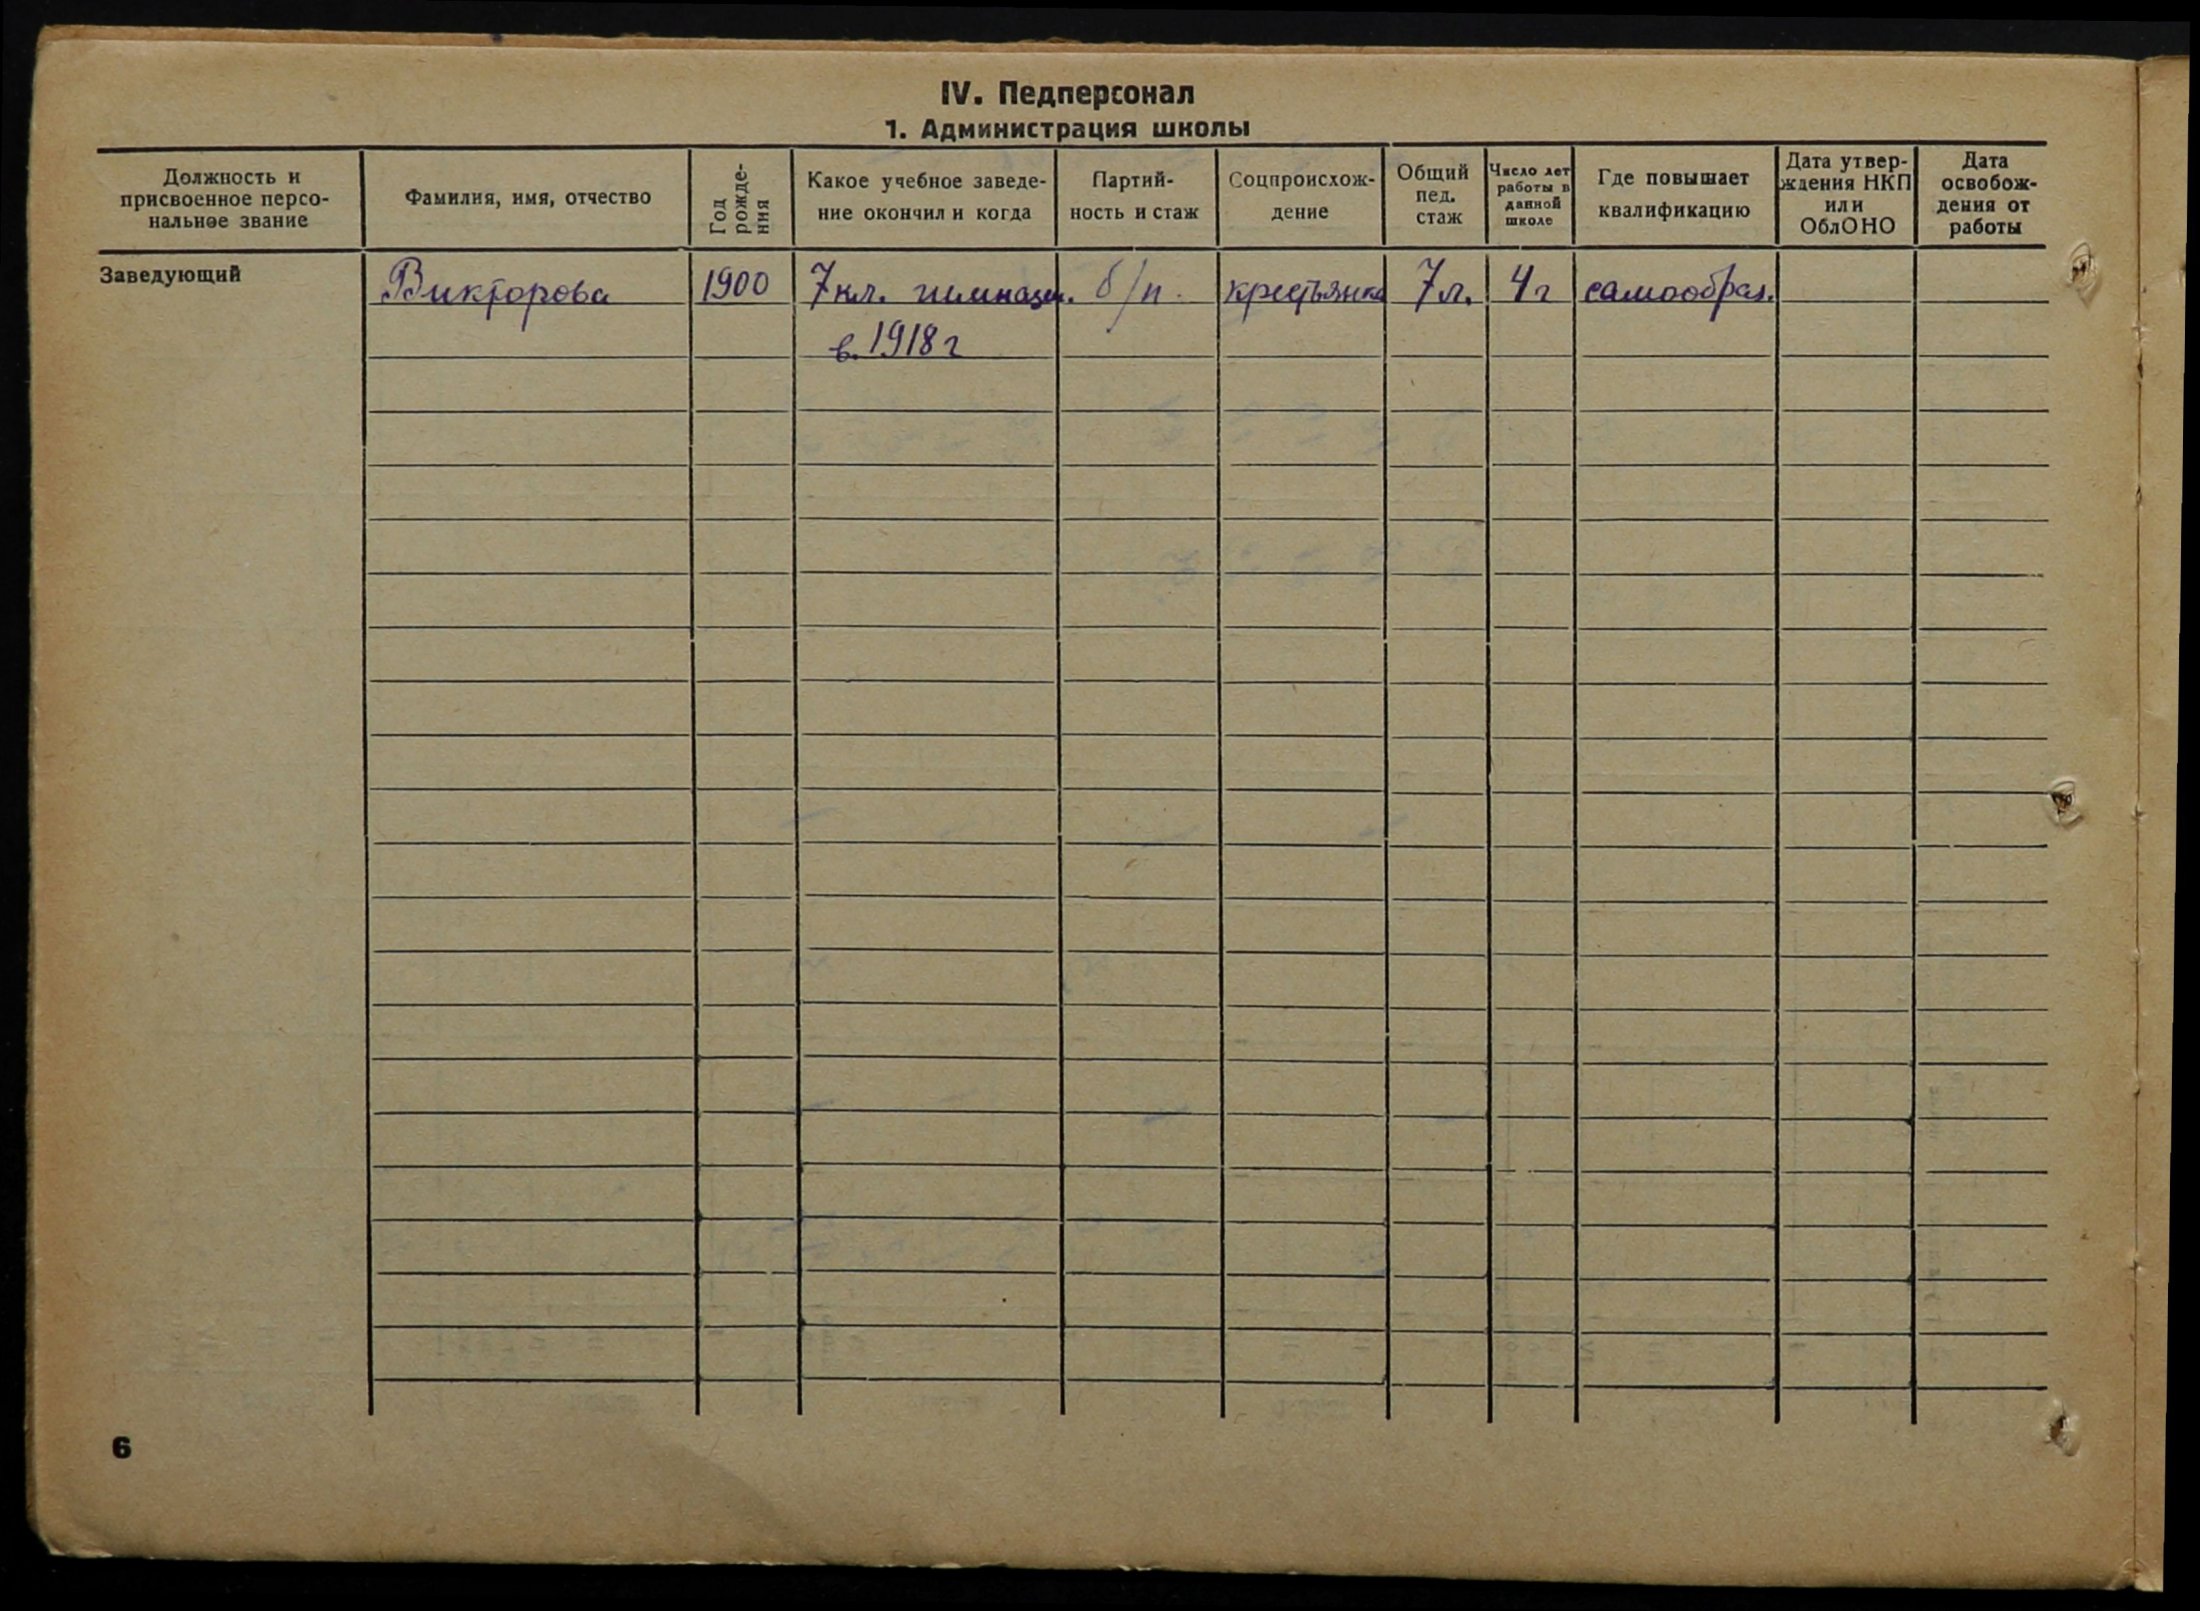 IV. Педперсонал
1. Администрация школы
Должность и
присвоенное персо-
нальное звание
Фамилия, имя, отчество
Год
рожде-
ния
Какое учебное заведе-
ние окончил и когда
Партий-
ность и стаж
Соцпроисхож-
дение
Общий
пед.
стаж
Число лет
работы в
данной
школе
Где повышает
квалификацию
Дата утвер-
ждения НКП
или
ОблОНО
Дата
освобож-
дения от
работы
Заведующий Викторова 1900 7 кл. гимназии. б/п. крестьянка 7 л. 4 г самообраз.
в. 1918 г
6